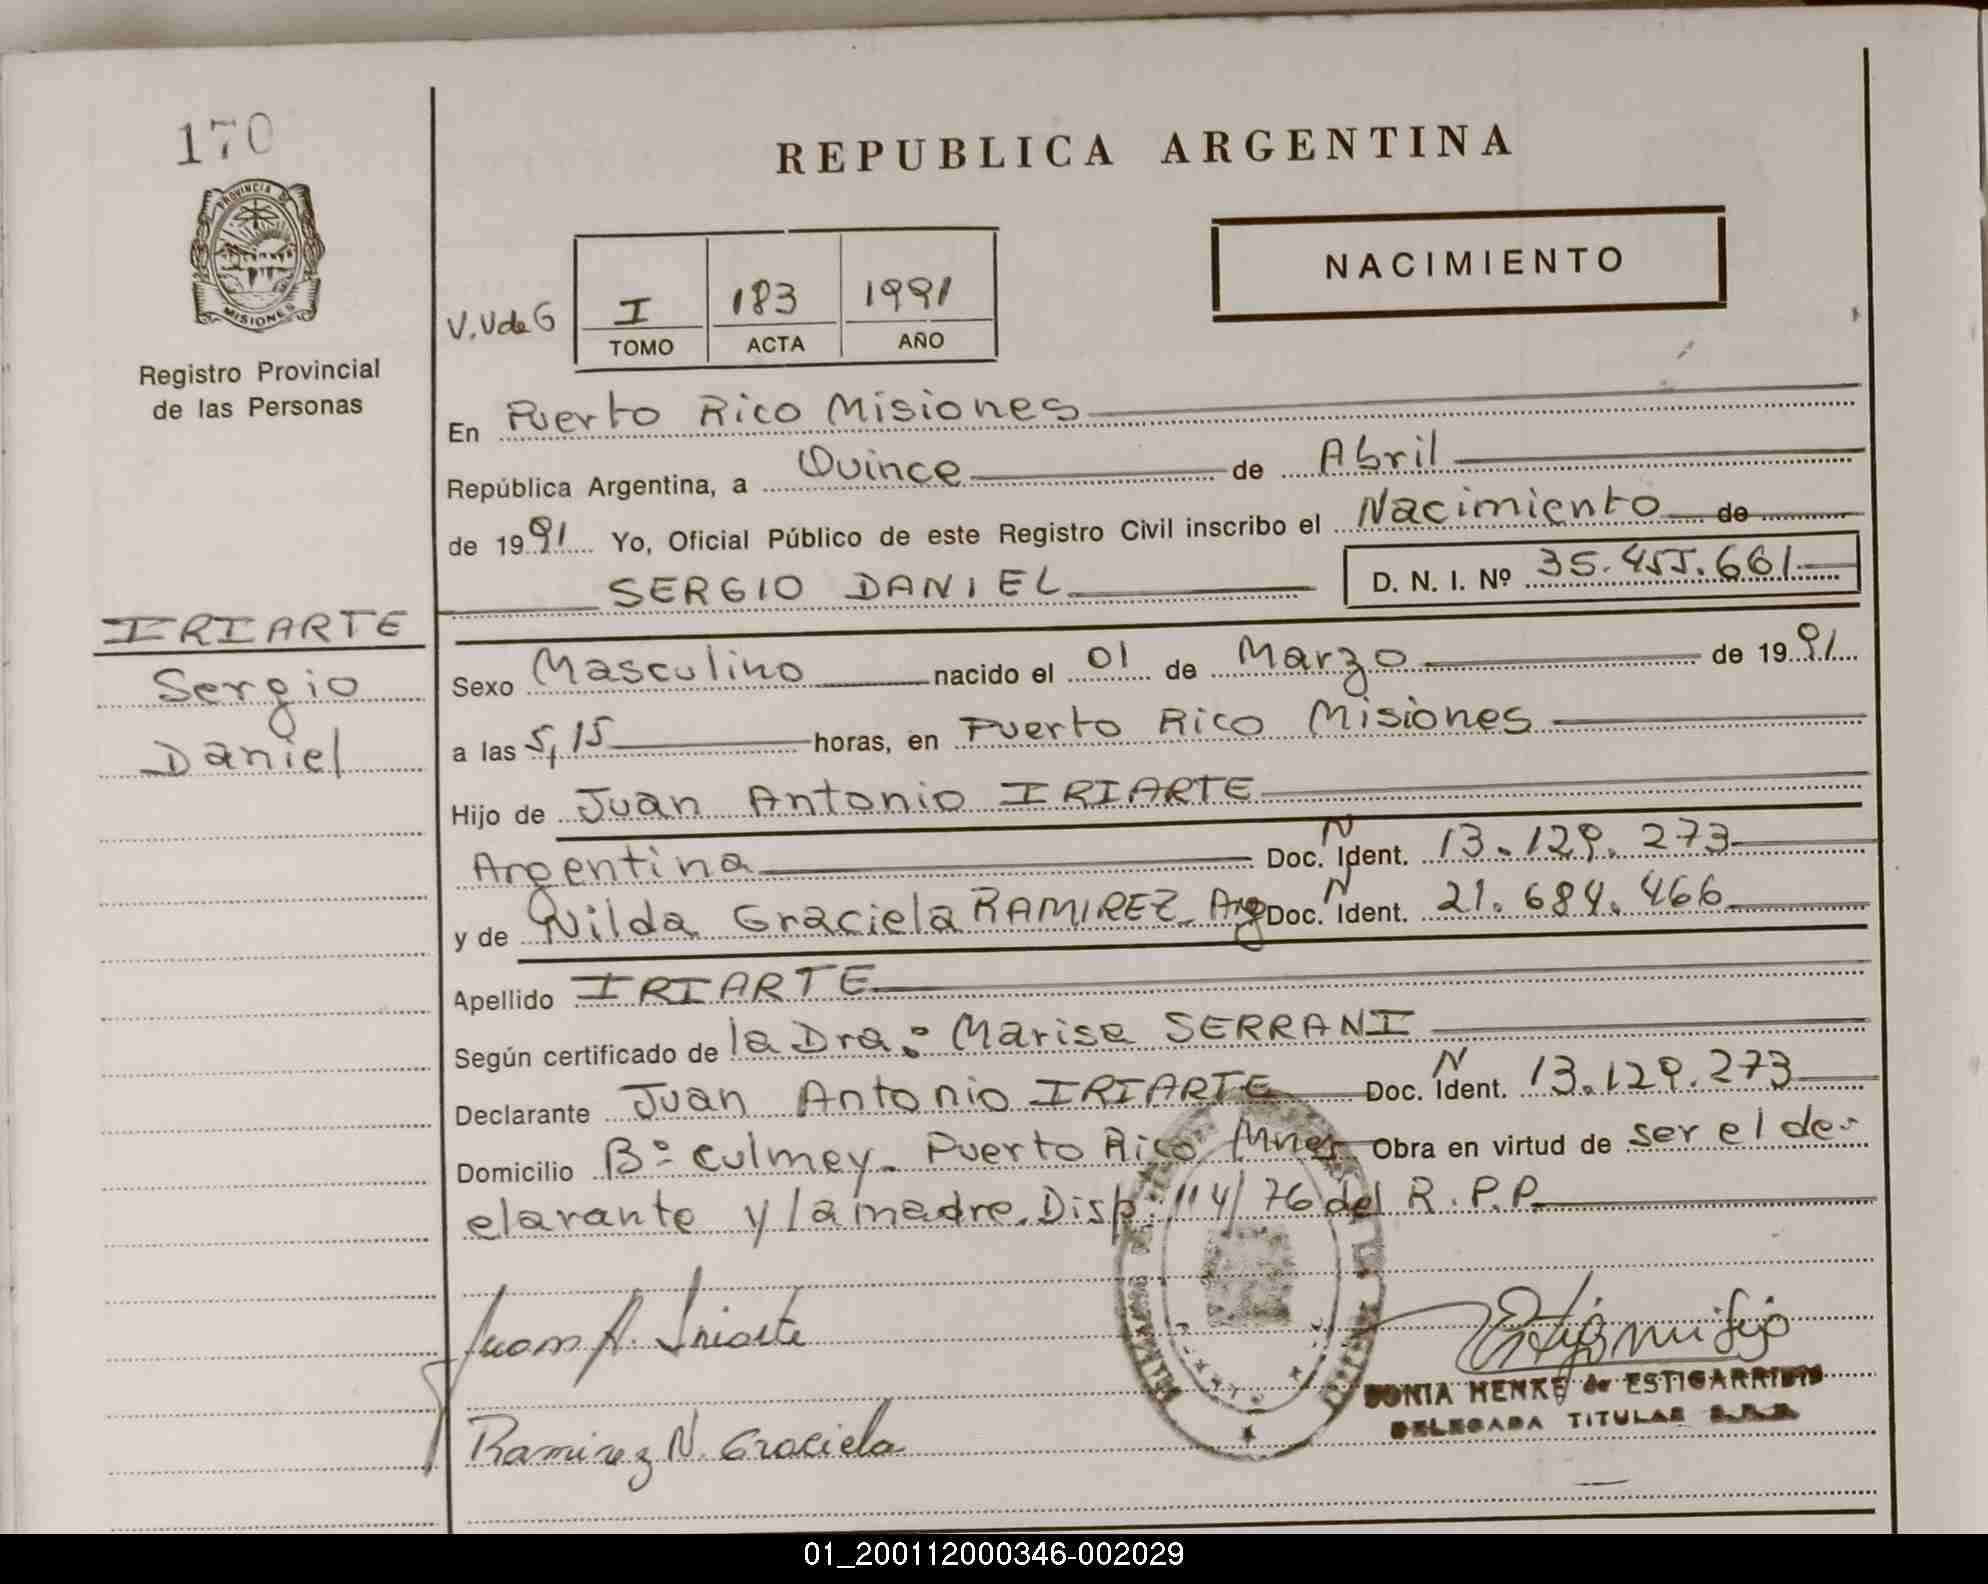 170
REPUBLICA ARGENTINA
PROVINCIA DE
MISIONES
NACIMIENTO
V.V de G
I 183 1991
TOMO ACTA AÑO
Registro Provincial
de las Personas
En Puerto Rico Misiones
República Argentina, a Quince de Abril
de 1991 Yo, Oficial Público de este Registro Civil inscribo el Nacimiento de
SERGIO DANIEL D. N. I. Nº 35.455.661
IRIARTE
Sergio
Daniel
Sexo Masculino nacido el 01 de Marzo de 1991
a las 5,15 horas, en Puerto Rico Misiones
Hijo de Juan Antonio IRIARTE
Argentina Doc. N Ident. 13.129.273
y de Nilda Graciela RAMIREZ Arg Doc. N Ident. 21.684.466
Apellido IRIARTE
Según certificado de la Dra: Marisa SERRANI
Declarante Juan Antonio IRIARTE Doc. N Ident. 13.129.273
Domicilio Bº Culmey. Puerto Rico Mnes Obra en virtud de ser el de-
clarante y la madre. Disp: 114/76 del R.P.P.
Juan A. Iriarte
Ramirez N. Graciela
SONIA HENKE de ESTIGARRIBIA
DELEGADA TITULAR
01_200112000346-002029